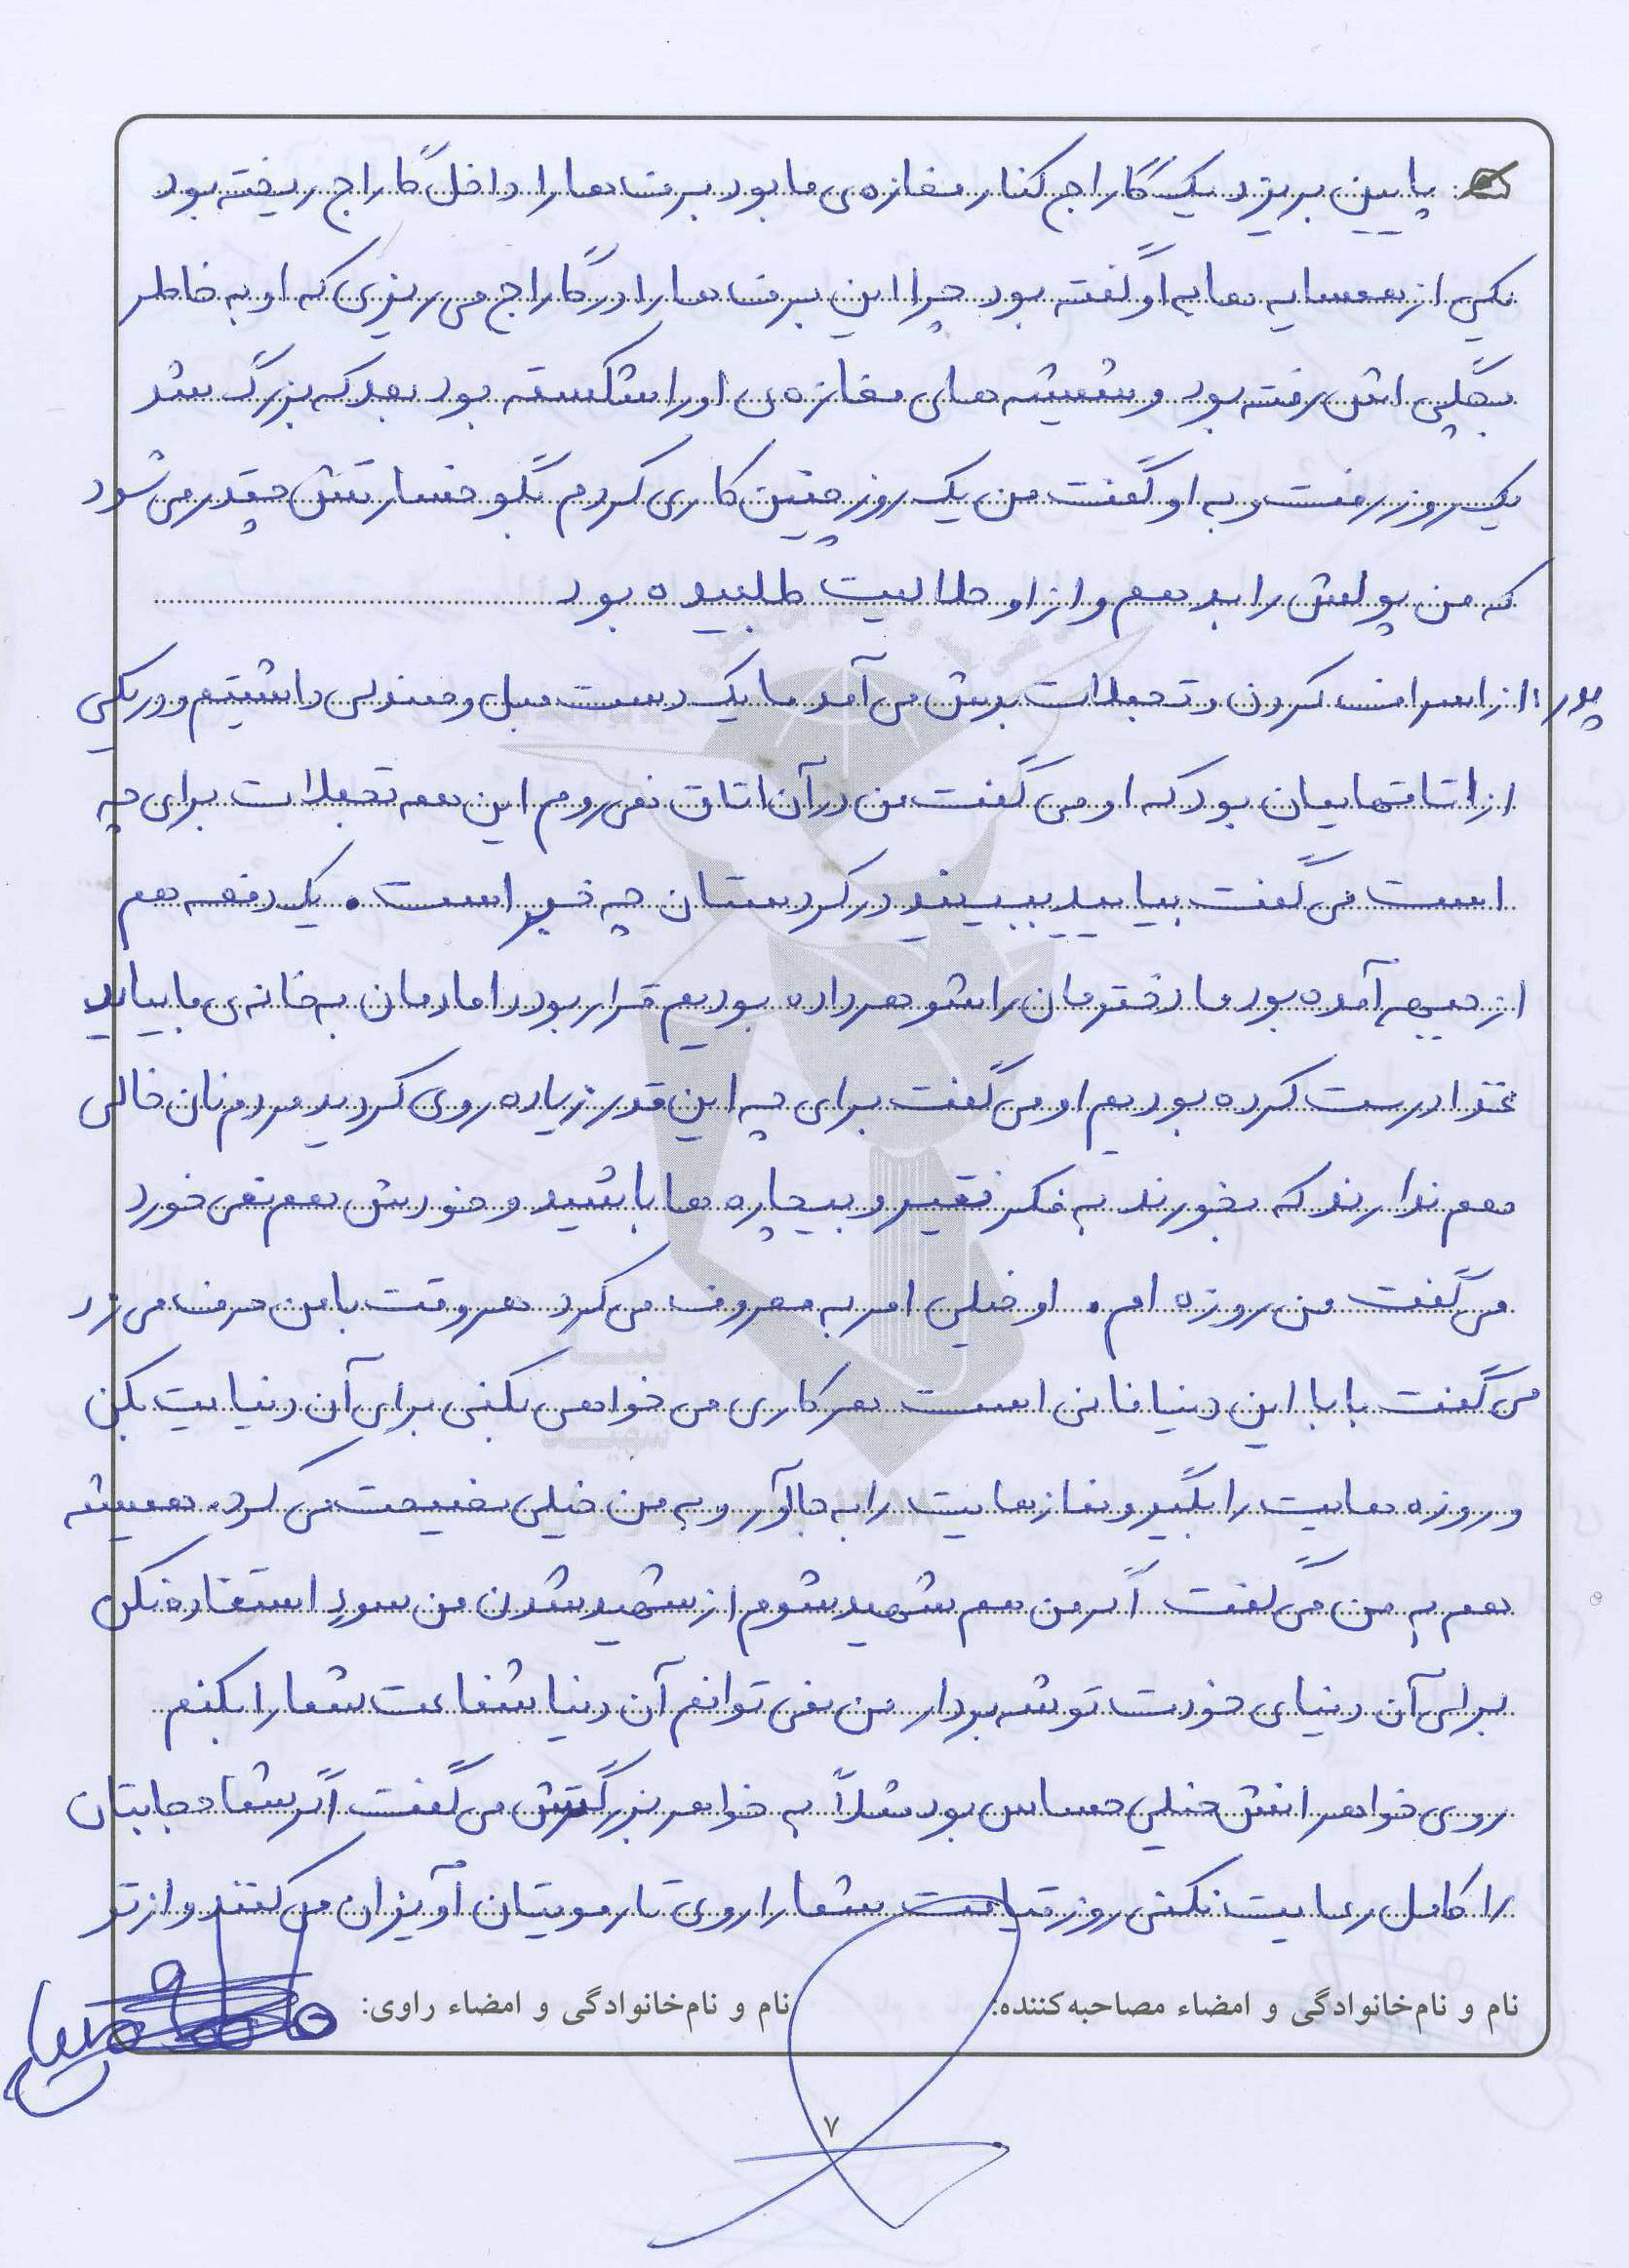 پایین بریزد یک گاراج کنار مغازه‌ی ما بود برف ها را داخل گاراج ریخته بود
یکی از همسایه ها به او گفته بود چرا این برف ها را در گاراج می ریزی که او به خاطر
بچگی اش رفته بود و شیشه های مغازه‌ی او را شکسته بود بعد که بزرگ شد
یک روز رفت و به او گفت من یک روز چنین کاری کردم بگو خسارتش چقدر می شود
که من پولش را بدهم و از او حلالیت طلبیده بود
پدر: از اسراف کردن و تجملات بدش می آمد ما یک دست مبل و صندلی داشتیم و در یکی
از اتاقهایمان بود که او می گفت من در آن اتاق نمی روم این همه تجملات برای چه
است می گفت بیایید ببینید در کردستان چه خبر است. یک دفعه هم
از جبهه آمده بود ما دخترمان را شوهر داده بودیم قرار بود دامادمان به خانه‌ی ما بیاید
غذا درست کرده بودیم او می گفت برای چه این قدر زیاده روی کردید مردم نان خالی
هم ندارند که بخورند به فکر فقیر و بیچاره ها باشید و خودش هم نمی خورد
می گفت من روزه ام. او خیلی امر به معروف می کرد هر وقت با من حرف می زد
می گفت بابا این دنیا فانی است هر کاری می خواهی بکنی برای آن دنیایت بکن
و روزه هایت را بگیر و نمازهایت را به جا آور و به من خیلی نصیحت می کرد. همیشه
هم به من می گفت اگر من هم شهید شوم از شهید شدن من سوء استفاده نکن
برای آن دنیای خودت توشه بردار من نمی توانم آن دنیا شفاعت شما را بکنم
روی خواهرانش خیلی حساس بود مثلاً به خواهر بزرگترش می گفت اگر شما حجابتان
را کامل رعایت نکنی روز قیامت شما را روی تار مویتان آویزان می کنند و از تو
نام و نام‌خانوادگی و امضاء مصاحبه‌کننده: نام و نام‌خانوادگی و امضاء راوی:
۷